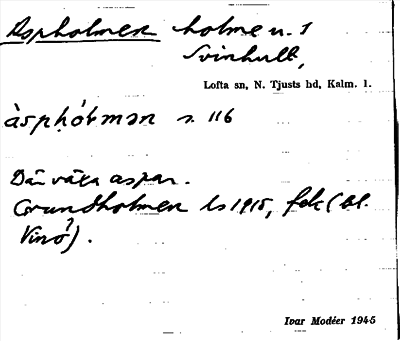 Aspholmen holme u. 1
Svinhult,
Lofta sn, N. Tjusts hd, Kalm. l.
àsphó̩tmən s. 116
Där växa aspar.
Grundholmen ls 1915, fek (bl.
Vinö?).
Ivar Modéer 1945